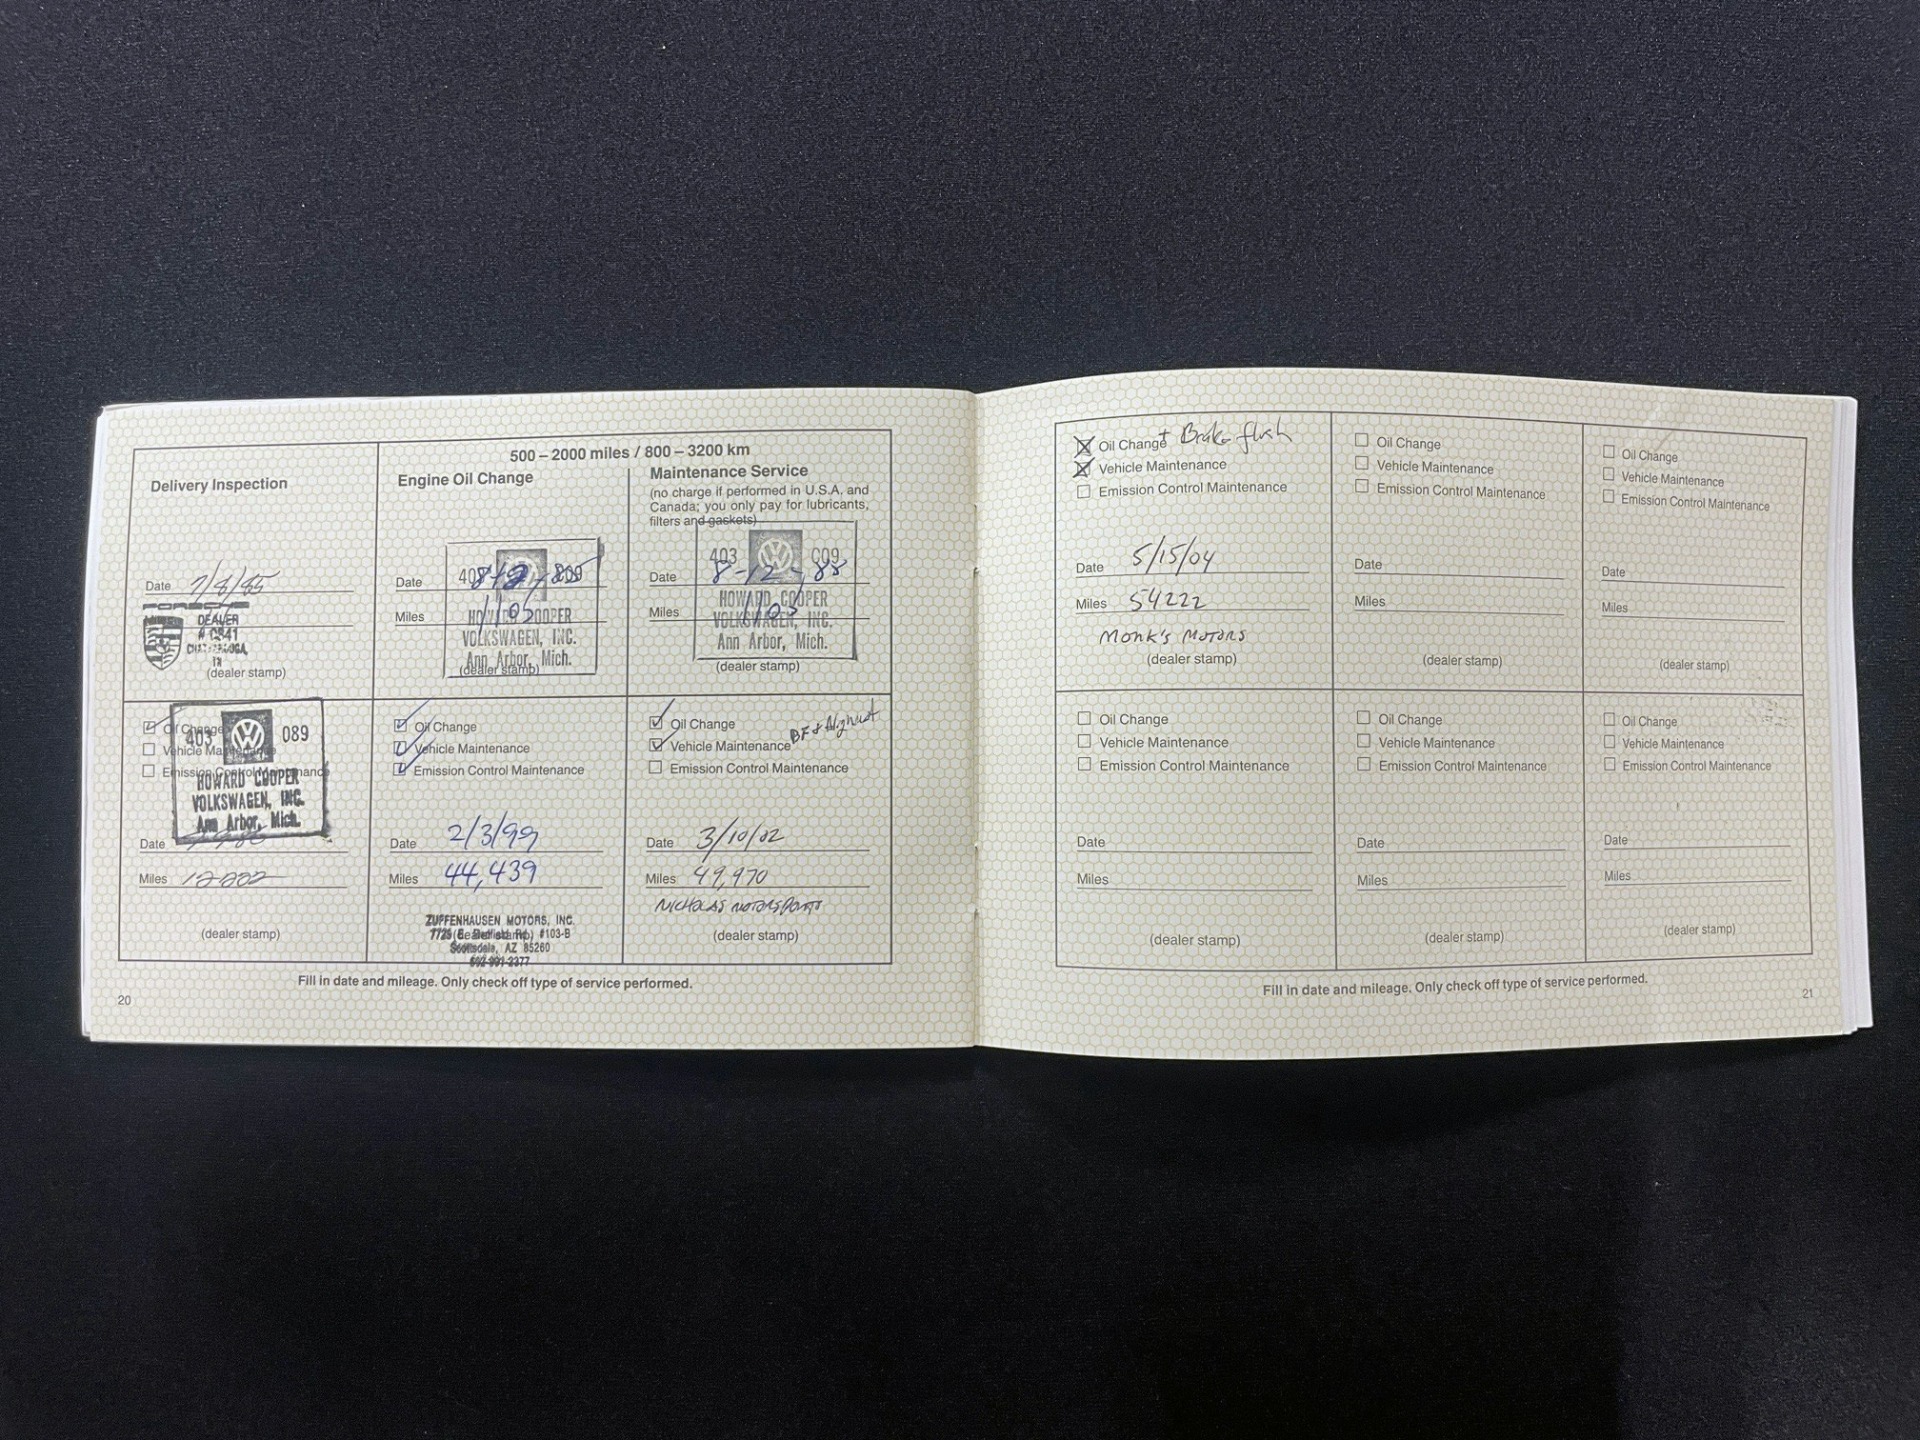 500 – 2000 miles / 800 – 3200 km
Delivery Inspection
Date 7/8/85
PORSCHE
DEALER
(dealer stamp)
Engine Oil Change
Date
Miles 1105
HOWARD COOPER
VOLKSWAGEN, INC.
Ann Arbor, Mich.
(dealer stamp)
Maintenance Service
(no charge if performed in U.S.A. and
Canada; you only pay for lubricants,
filters and gaskets)
403 009
Date 8-12-
Miles 1105
HOWARD COOPER
VOLKSWAGEN, INC.
Ann Arbor, Mich.
(dealer stamp)
Oil Change
Vehicle Maintenance
Emission Control Maintenance
403 089
HOWARD COOPER
VOLKSWAGEN, INC.
Ann Arbor, Mich.
Date
Miles
(dealer stamp)
Oil Change
Vehicle Maintenance
Emission Control Maintenance
Date 2/3/99
Miles 44,439
ZUFFENHAUSEN MOTORS, INC.
(dealer stamp) #103-B
Scottsdale, AZ 85260
Oil Change
Vehicle Maintenance BF +
Emission Control Maintenance
Date 3/10/02
Miles 49,970
NICHOLAS MOTORSPORTS
(dealer stamp)
Fill in date and mileage. Only check off type of service performed.
20
Oil Change + Brake flush
Vehicle Maintenance
Emission Control Maintenance
Date 5/15/04
Miles 54222
MONK'S MOTORS
(dealer stamp)
Oil Change
Vehicle Maintenance
Emission Control Maintenance
Date
Miles
(dealer stamp)
Oil Change
Vehicle Maintenance
Emission Control Maintenance
Date
Miles
(dealer stamp)
Oil Change
Vehicle Maintenance
Emission Control Maintenance
Date
Miles
(dealer stamp)
Oil Change
Vehicle Maintenance
Emission Control Maintenance
Date
Miles
(dealer stamp)
Oil Change
Vehicle Maintenance
Emission Control Maintenance
Date
Miles
(dealer stamp)
Fill in date and mileage. Only check off type of service performed.
21